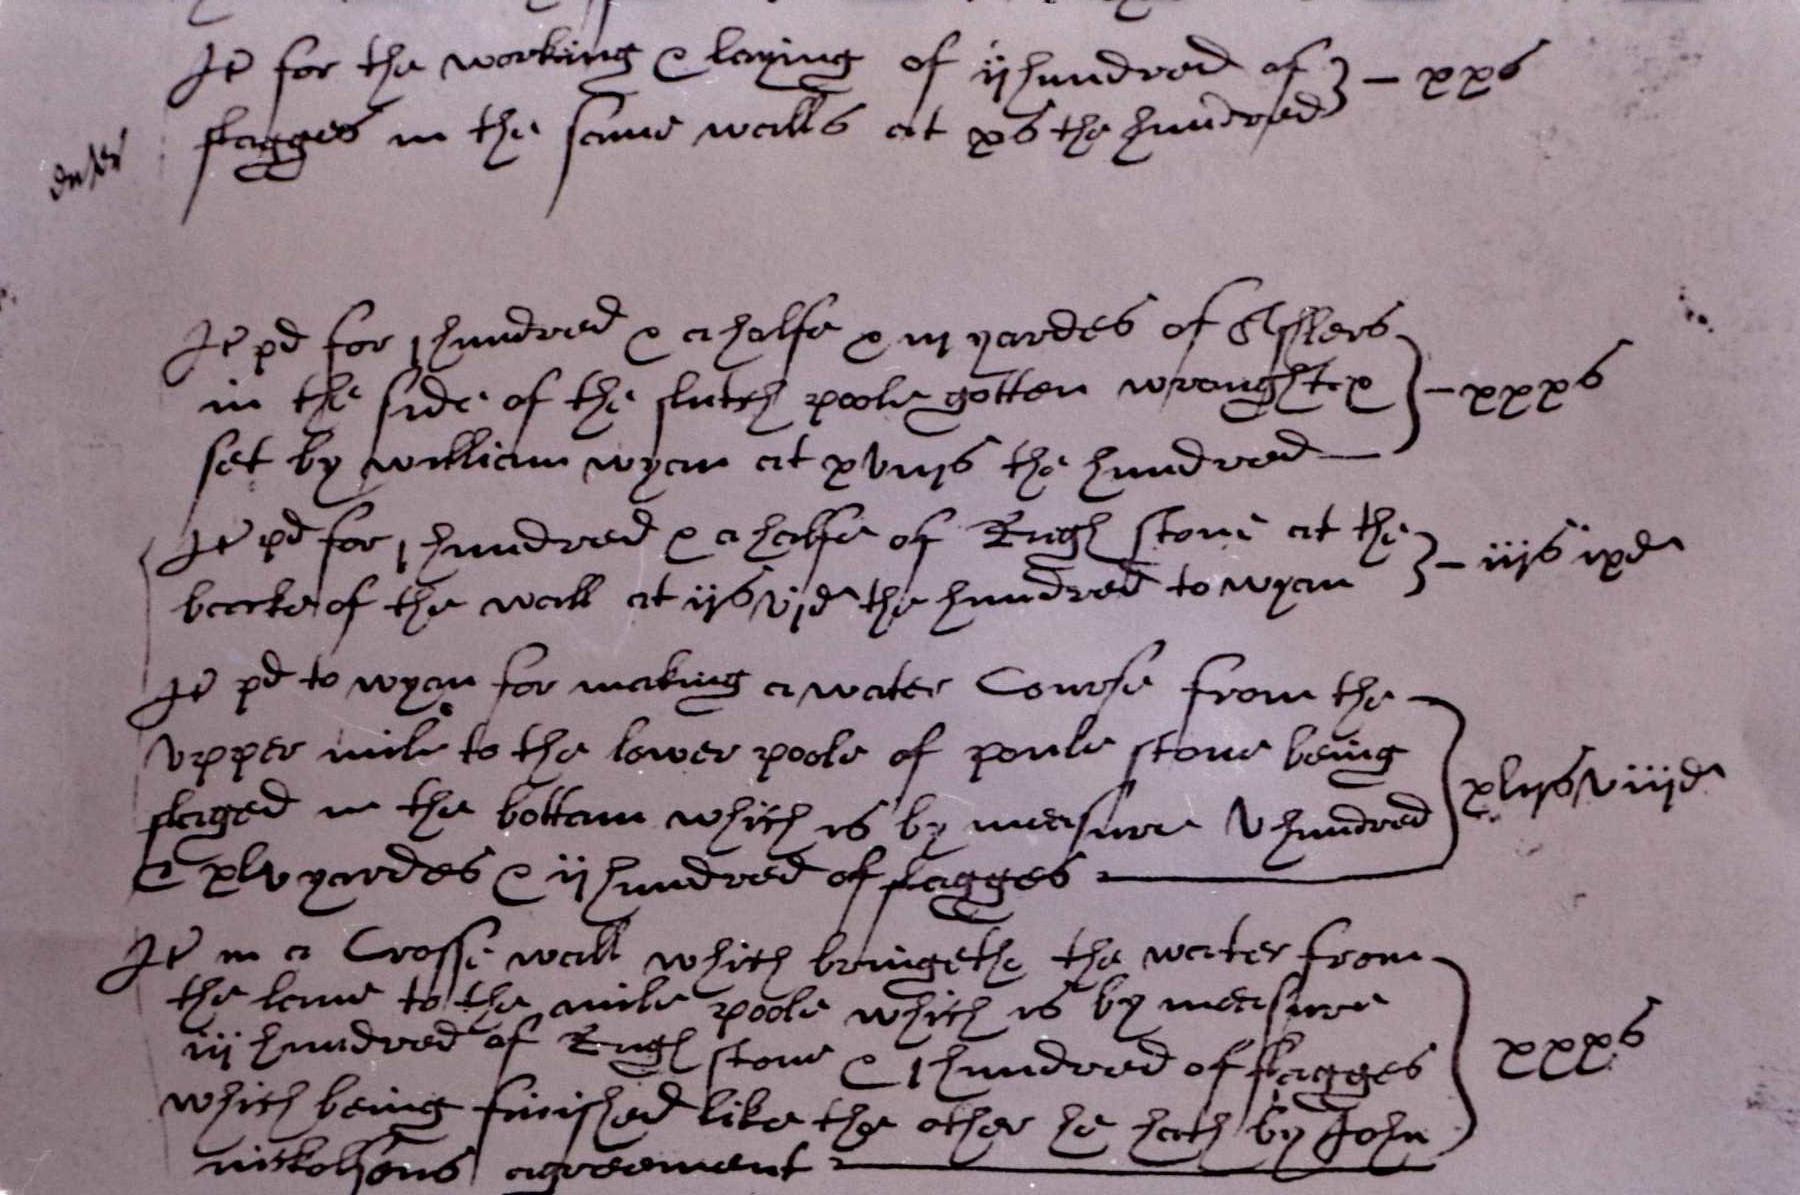 It for the working & laying of ij hundred of — xxs
flagges in the same walls at xs the hundred
It pd for j hundred & a halfe & iij yardes of Ashlers
in the side of the slutch poole gotten wrought & — xxxs
set by william wyan at xviijs the hundred
It pd for j hundred & a halfe of Rugh stone at the — iijs ixd
backe of the wall at ijs vjd the hundred to wyan
It pd to wyan for making a water Course from the
vpper mile to the lower poole of poule stone being
flaged in the bottam which is by measure v hundred xlijs viijd
& xlv yardes & ij hundred of flagges
It in a Crosse wall which bringethe the water from
the lane to the mile poole which is by measure
iij hundred of Rugh stone & j hundred of flagges xxxs
which being finished like the other he hath by John
nickolsons agreement